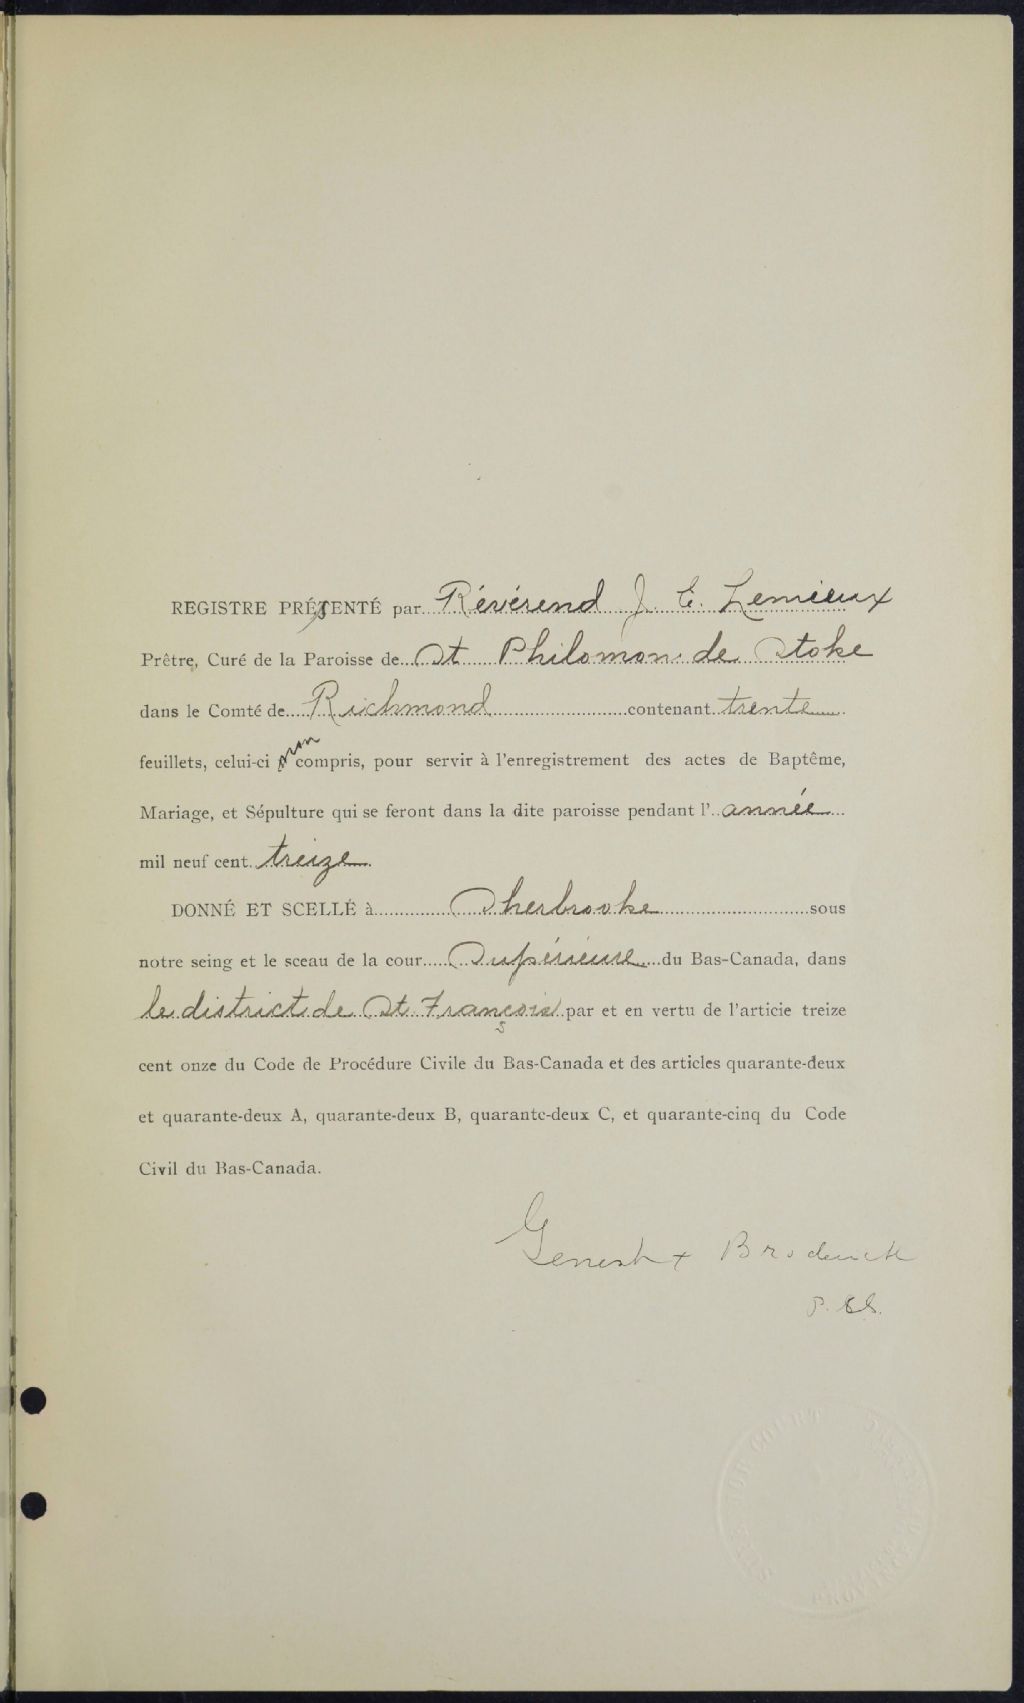 REGISTRE PRÉSENTÉ par Révérend J. E. Lemieux
Prêtre, Curé de la Paroisse de St Philomon de Stoke
dans le Comté de Richmond contenant trente
feuillets, celui-ci non compris, pour servir à l'enregistrement des actes de Baptême,
Mariage, et Sépulture qui se feront dans la dite paroisse pendant l'année
mil neuf cent treize
DONNÉ ET SCELLÉ à Sherbrooke sous
notre seing et le sceau de la cour Supérieure du Bas-Canada, dans
le district de St François par et en vertu de l'articie treize
cent onze du Code de Procédure Civile du Bas-Canada et des articles quarante-deux
et quarante-deux A, quarante-deux B, quarante-deux C, et quarante-cinq du Code
Civil du Bas-Canada.
Genest & Broderick
OF COURT